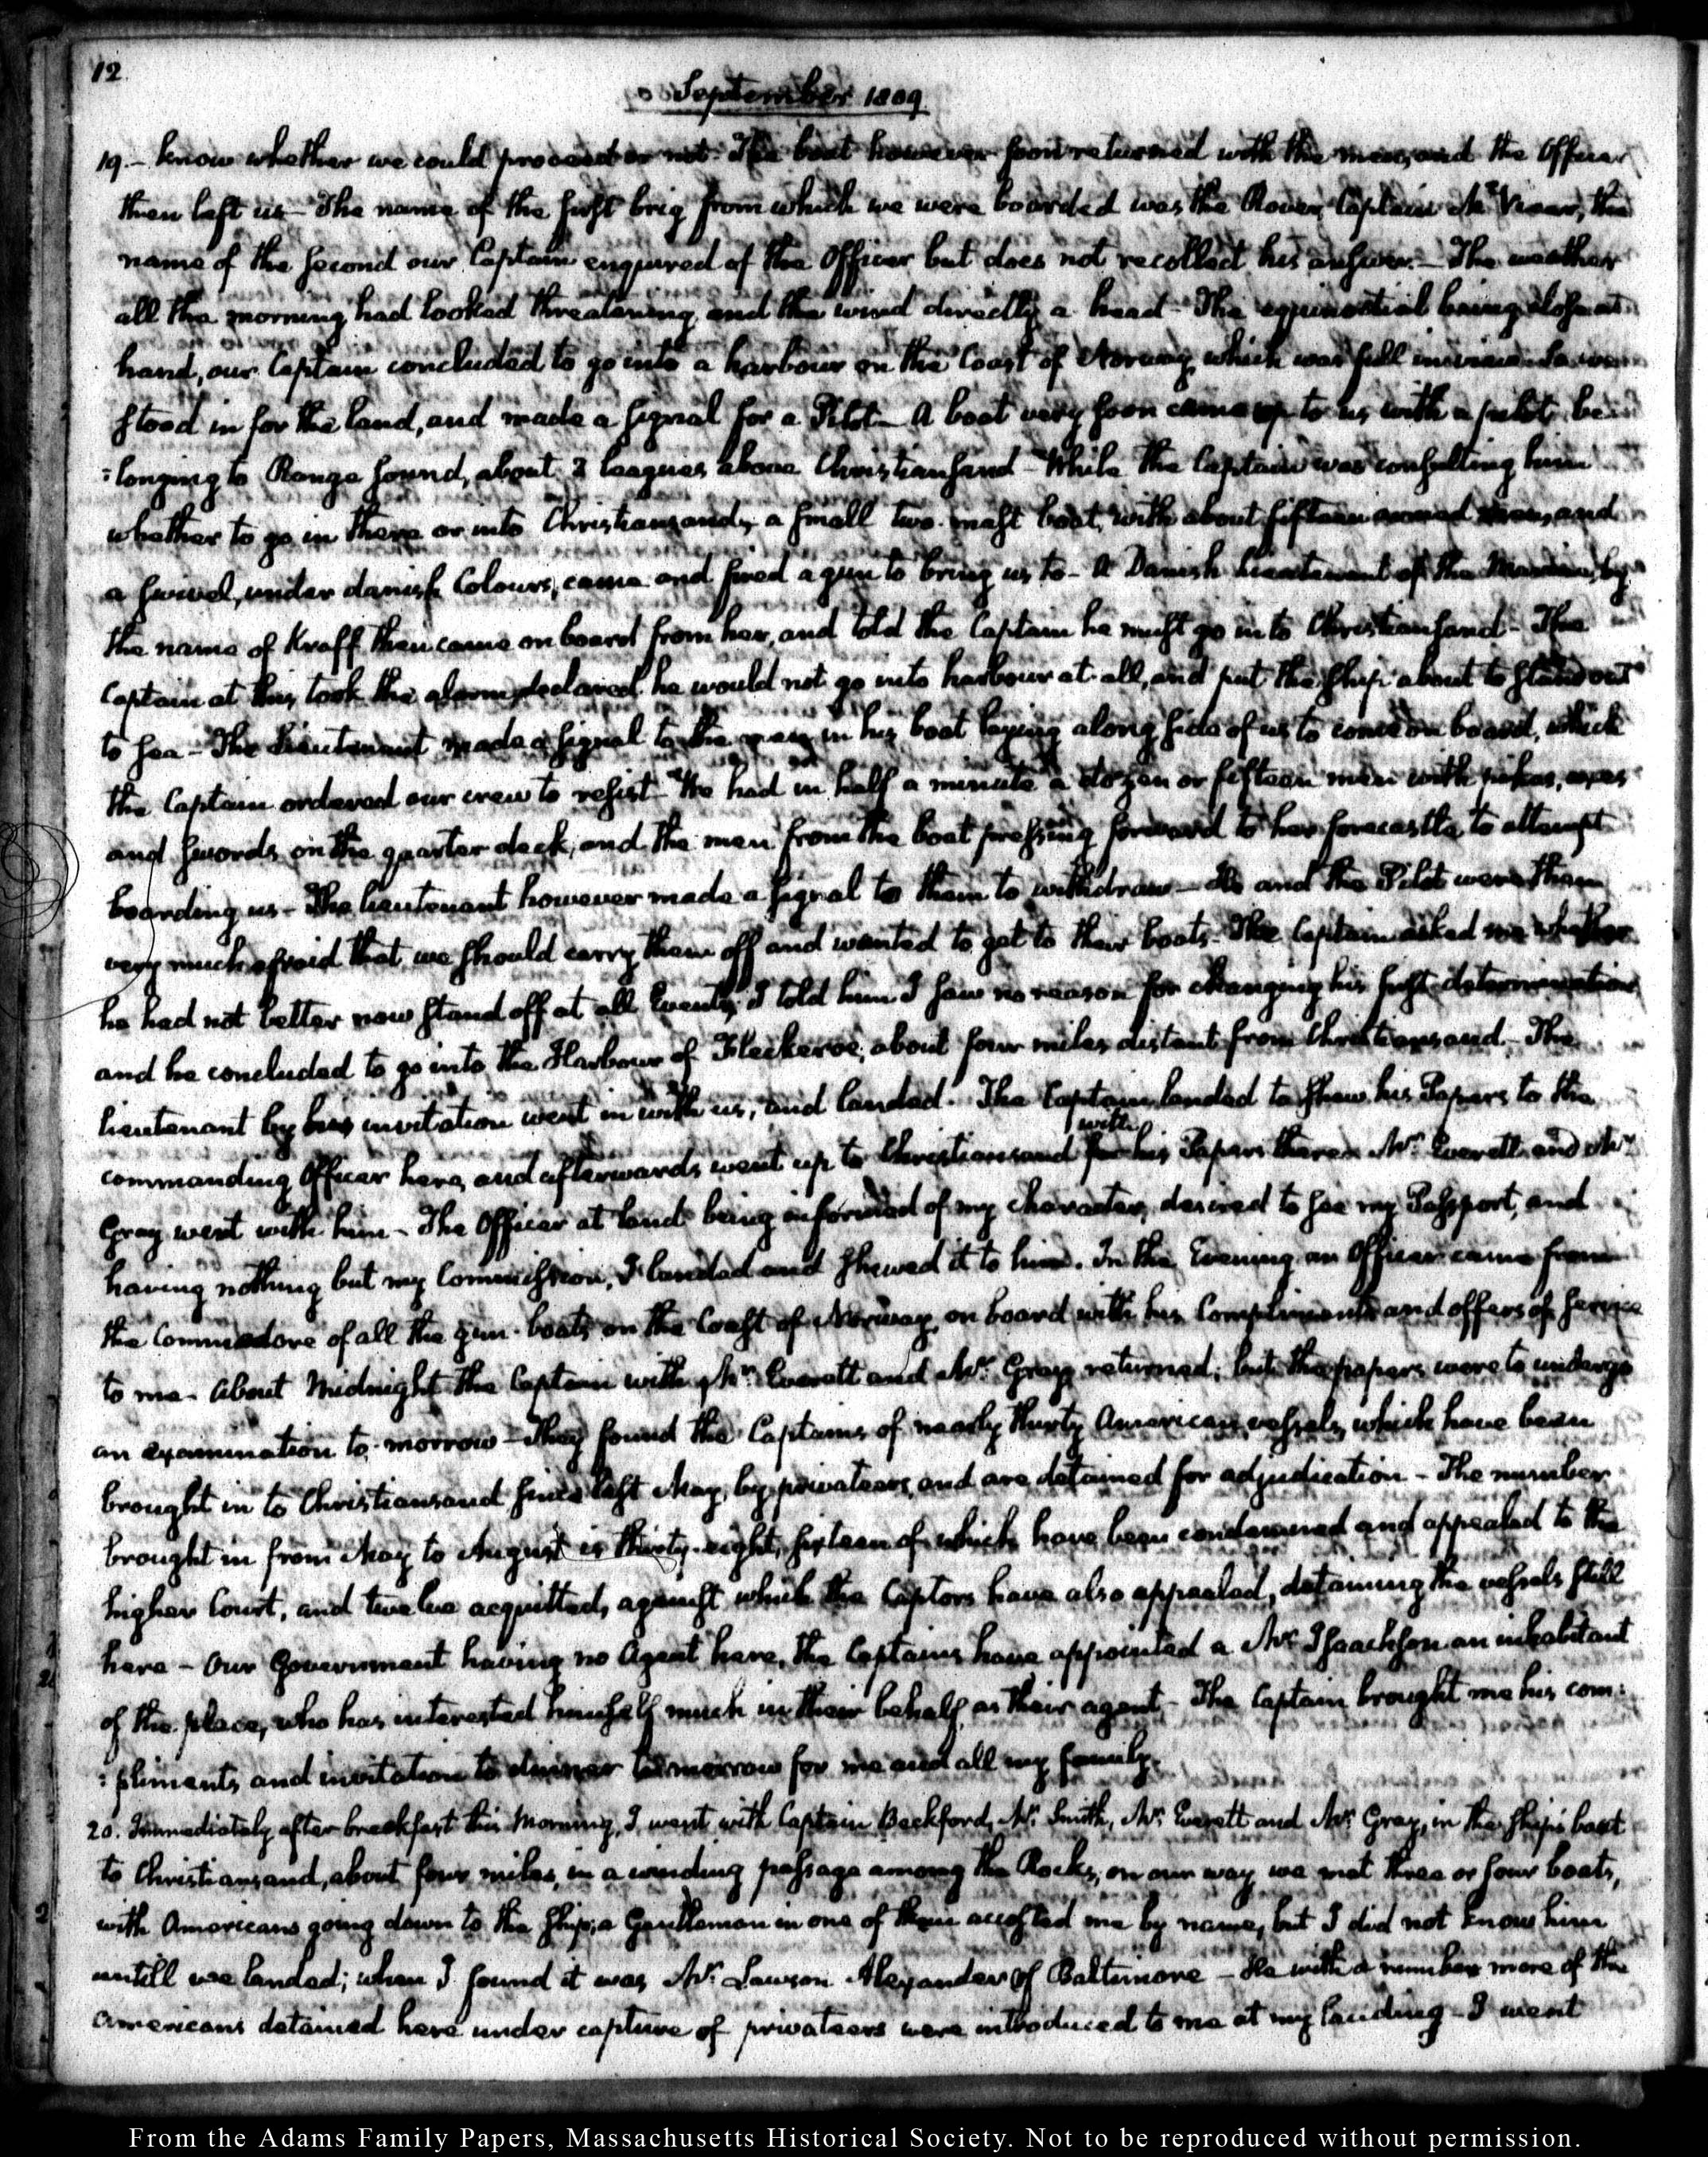 12
September 1809
19.- know whether we could proceed or not. The boat however soon returned with the men, and the Officer
then left us - The name of the first brig from which we were boarded was the Rover, Captain McVicar, the
name of the second our Captain enquired of the Officer but does not recollect his answer. - The weather
all the morning had looked threatening, and the wind directly a head - The equinoctial being close at
hand, our Captain concluded to go into a harbour on the Coast of Norway, which was full in view. So we
stood in for the land, and made a signal for a Pilot - A boat very soon came up to us with a pilot, be
:longing to Range sound, about 2 leagues above Christiansand - While the Captain was consulting him
whether to go in there or into Christiansand, a small two-mast boat, with about fifteen armed men, and
a swivel, under danish Colours, came and fired a gun to bring us to - A Danish Lieutenant of the Marine, by
the name of Kraff then came on board from her, and told the Captain he must go in to Christiansand - The
Captain at this took the alarm, declared he would not go into harbour at all, and put the ship about to stand out
to sea - The Lieutenant made a signal to the men in his boat laying along side of us to come on board, which
the Captain ordered our crew to resist - We had in half a minute a dozen or fifteen men with pikes, axes
and swords on the quarter deck, and the men from the boat pressing forward to her forecastle to attempt
boarding us - The lieutenant however made a signal to them to withdraw - He and the Pilot were then
very much afraid that we should carry them off and wanted to get to their boats - The Captain asked me whether
he had not better now stand off at all Events; I told him I saw no reason for changing his first determination
and he concluded to go into the Harbour of Fleckeroe, about four miles distant from Christiansand - The
lieutenant by his invitation went in with us, and landed. The Captain landed to shew his Papers to the
with
commanding Officer here, and afterwards went up to Christiansand for his Papers there - Mr. Everett and Mr.
Gray went with him - The Officer at land being informed of my character, desired to see my Passport, and
having nothing but my Commission, I landed and shewed it to him. In the Evening an Officer came from
the Commodore of all the gun-boats on the Coast of Norway, on board with his Compliments and offers of service
to me - About Midnight the Captain with Mr. Everett and Mr. Gray returned; but the papers were to undergo
an examination to-morrow - They found the Captains of nearly thirty American vessels, which have been
brought in to Christiansand since last May, by privateers, and are detained for adjudication - The number
brought in from May to August is thirty-eight, sixteen of which have been condemned and appealed to the
higher Court, and twelve acquitted, against which the Captors have also appealed, detaining the vessels still
here - Our Government having no Agent here, the Captains have appointed a Mr. Isaackson an inhabitant
of the place, who has interested himself much in their behalf, as their agent - The Captain brought me his com:
:pliments and invitation to dinner tomorrow for me and all my family.
20. Immediately after breakfast this Morning, I went with Captain Beckford, Mr. Smith, Mr. Everett and Mr. Gray, in the ship's boat
to Christiansand, about four miles, in a winding passage among the Rocks; on our way we met three or four boats,
with Americans going down to the ship; a Gentleman in one of them accosted me by name, but I did not know him
untill we landed; when I found it was Mr. Lawson Alexander of Baltimore - He with a number more of the
Americans detained here under capture of privateers were introduced to me at my landing - I went
From the Adams Family Papers, Massachusetts Historical Society. Not to be reproduced without permission.